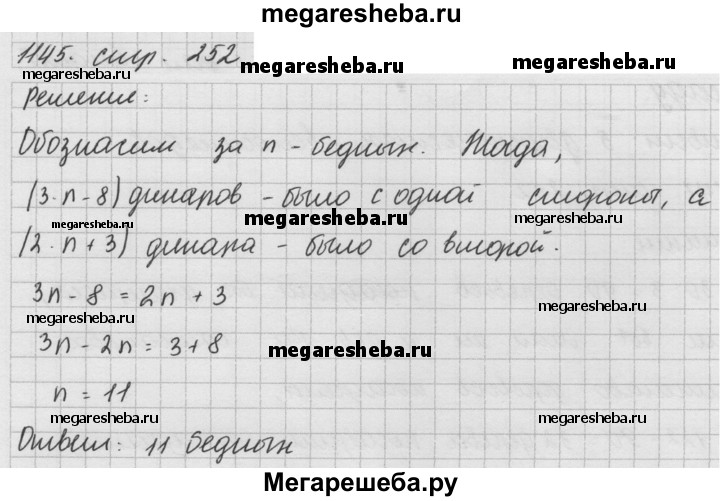 megaresheba.ru
1145. стр. 252
megaresheba.ru
megaresheba.ru
megaresheba.ru
Решение:
Обозначим за n - бедных. Тогда,
(3·n-8) динаров - было с одной стороны, а
megaresheba.ru
megaresheba.ru
megaresheba.ru
(2·n+3) динара - было со второй.
3n-8=2n+3
megaresheba.ru
megaresheba.ru
3n-2n=3+8
megaresheba.ru
n=11
megaresheba.ru
megaresheba.ru
Ответ: 11 бедных
Мегарешеба.ру